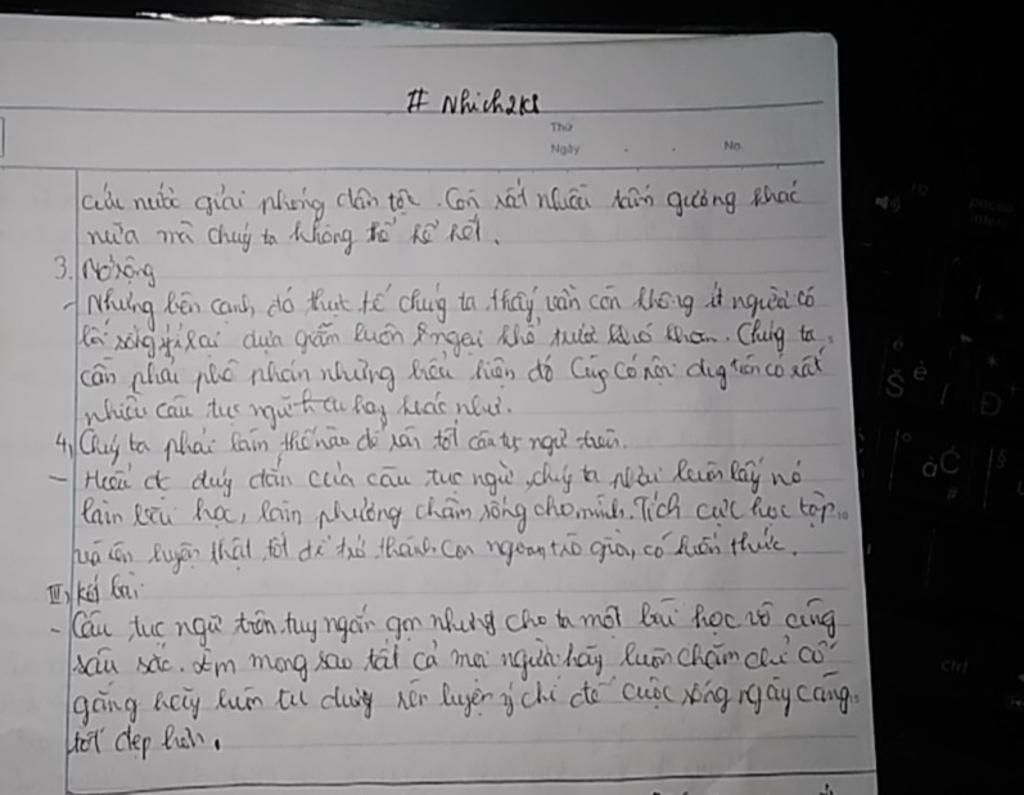 # Nhich2k8
Thứ
Ngày . . No.
cứu nước giải phóng dân tộc. Còn rất nhiều tấm gương khác
nữa mà chúg ta không thể kể hết.
3. Mở rộng
- Nhưng bên cạnh đó thực tế chúg ta thấy vẫn còn không ít người có
lối sống ỷ lại dựa giẫm luôn ngại khó trước khó khăn. Chúg ta
cần phải phê phán những biểu hiện đó Cũg có nội dug trên có rất
nhiều câu tục ngữ hay khác như.
4, Chúg ta phải làm thế nào để rèn tốt câu tục ngữ trên.
- Hiểu đc đúg đắn của câu tục ngữ, chúg ta phải luôn lấy nó
làm bài học, làm phương châm sống cho mình. Tích cực học tập
và rèn luyện thật tốt để trở thành con ngoan, trò giỏi, có kiến thức.
III, Kết bài:
- Câu tục ngữ trên, tuy ngắn gọn nhưng cho ta một bài học vô cùng
sâu sắc. Em mong sao tất cả mọi người hãy luôn chăm chỉ cố
gắng hãy luôn tu dưỡng rèn luyện ý chí để cuộc sống ngày càng
tốt đẹp hơn.
ctrl
Š
è
Đ
*
à
Ć
#
§